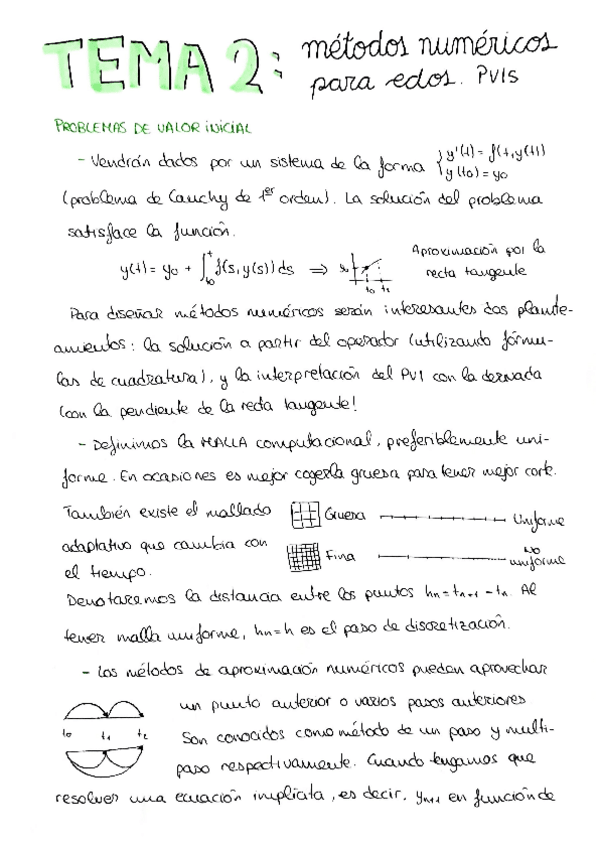 TEMA 2: métodos numéricos
para edos. PVIs
PROBLEMAS DE VALOR INICIAL
- Vendrán dados por un sistema de la forma { y'(t) = f(t,y(t))
y(t0) = y0
(problema de Cauchy de 1er orden). La solución del problema
satisface la función.
y(t) = y0 + ∫_{t0}^{t} f(s,y(s)) ds ⇒ y0 t0 t1 Aproximación por la
recta tangente
Para diseñar métodos numéricos serán interesantes dos plante-
amientos: la solución a partir del operador (utilizando fórmu-
las de cuadratura), y la interpretación del PVI con la derivada
(con la pendiente de la recta tangente!
- Definimos la MALLA computacional, preferiblemente uni-
forme. En ocasiones es mejor cogerla gruesa para tener mejor
También existe el mallado Gruesa Uniforme
adaptativo que cambia con Fina NO uniforme
el tiempo.
Denotaremos la distancia entre los puntos hn = tn+1 - tn. Al
tener malla uniforme, hn = h es el paso de discretización.
- Los métodos de aproximación numéricos pueden aprovechar
un punto anterior o varios pasos anteriores
t0 t1 t2 Son conocidos como método de un paso y multi-
paso respectivamente. Cuando tengamos que
resolver una ecuación implícita, es decir, yn+1 en función de